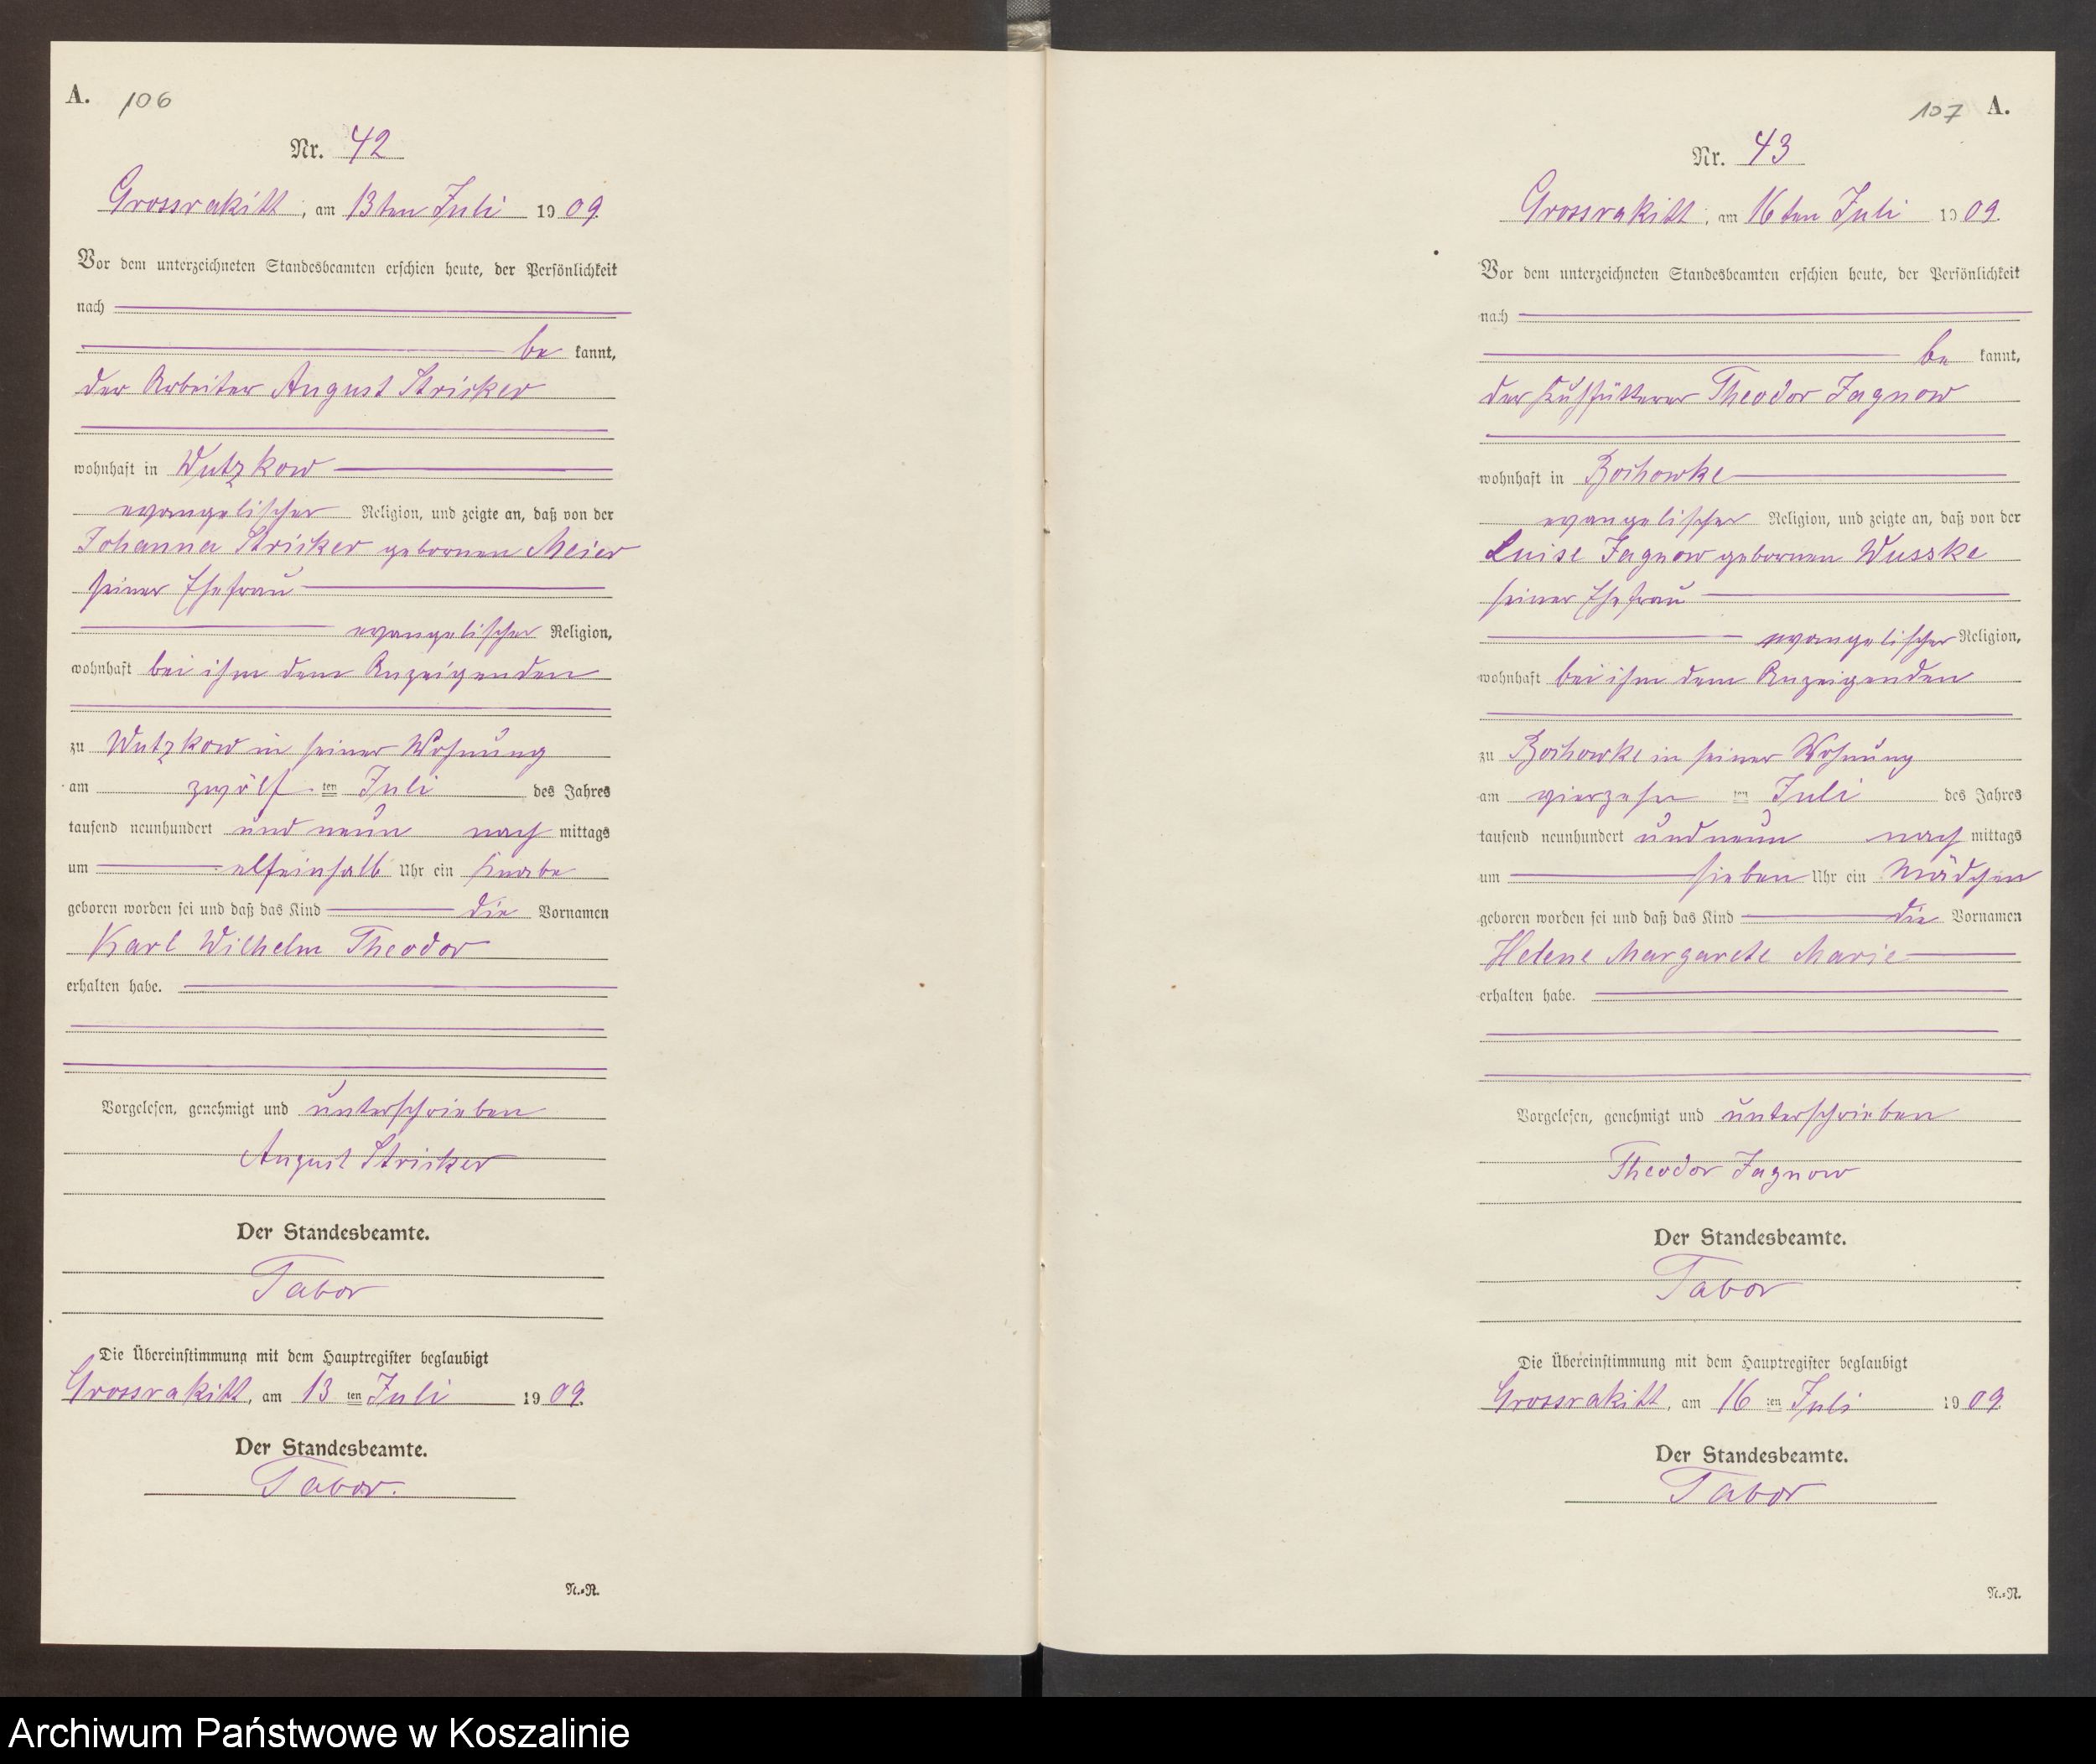 A. 106
Nr. 42
Grossrakitt, am 13ten Juli 1909.
Vor dem unterzeichneten Standesbeamten erschien heute, der Persönlichkeit
nach
be kannt,
der Arbeiter August Stricker
wohnhaft in Wutzkow
evangelischer Religion, und zeigte an, daß von der
Johanna Stricker gebornen Meier
seiner Ehefrau
evangelischer Religion,
wohnhaft bei ihm dem Anzeigenden
zu Wutzkow in seiner Wohnung
am zwölf ten Juli des Jahres
tausend neunhundert und neun nach mittags
um elfeinhalb Uhr ein Knabe
geboren worden sei und daß das Kind die Vornamen
Karl Wilhelm Theodor
erhalten habe.
Vorgelesen, genehmigt und unterschrieben
August Stricker
Der Standesbeamte.
Tabor
Die Übereinstimmung mit dem Hauptregister beglaubigt
Grossrakitt, am 13 ten Juli 1909.
Der Standesbeamte.
Tabor.
N.=N.
107 A.
Nr. 43
Grossrakitt, am 16ten Juli 1909.
Vor dem unterzeichneten Standesbeamten erschien heute, der Persönlichkeit
nach
be kannt,
der Kuhfütterer Theodor Jagnow
wohnhaft in Bochowke
evangelischer Religion, und zeigte an, daß von der
Luise Jagnow gebornen Wusske
seiner Ehefrau
evangelischer Religion,
wohnhaft bei ihm dem Anzeigenden
zu Bochowke in seiner Wohnung
am vierzehn ten Juli des Jahres
tausend neunhundert und neun nach mittags
um sieben Uhr ein Mädchen
geboren worden sei und daß das Kind die Vornamen
Helene Margarete Marie
erhalten habe.
Vorgelesen, genehmigt und unterschrieben
Theodor Jagnow
Der Standesbeamte.
Tabor
Die Übereinstimmung mit dem Hauptregister beglaubigt
Grossrakitt, am 16 ten Juli 1909.
Der Standesbeamte.
Tabor
N.=N.
Archiwum Państwowe w Koszalinie